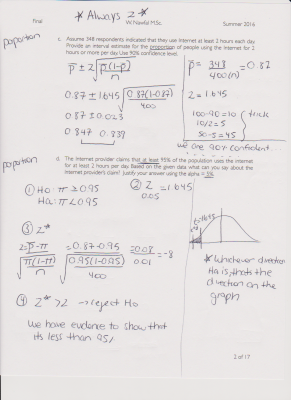 Final
* Always Z *
W.Nawfal M.Sc.
Summer 2016
poportion
c. Assume 348 respondents indicated that they use Internet at least 2 hours each day.
Provide an interval estimate for the proportion of people using the Internet for 2
hours or more per day. Use 90% confidence level.
p̅ ± Z √p̅(1-p̅)
n
0.87 ± 1.645 √0.87(1-0.87)
400
0.87 ± 0.023
0.847 0.839
p̅ = 348 = 0.87
400 (n)
Z = 1.645
100-90=10
10/2=5
50-5=45
} trick
we are 90% confident...
poportion
d. The internet provider claims that at least 95% of the population uses the internet
for at least 2 hours per day. Based on the given data what can you say about the
Internet provider's claim? Justify your answer using the alpha = 5%
① Ho: π ≥ 0.95
Ha: π < 0.95
② Z = 1.645
0.05
③ Z*
Z = p̅-π = 0.87-0.95 = -0.08 = -8
√π(1-π) √0.95(1-0.95) 0.01
n 400
④ Z* > Z → reject Ho
we have evidence to show that
its less than 95%
* Whichever direction
Ha is, thats the
direction on the
graph
2 of 17